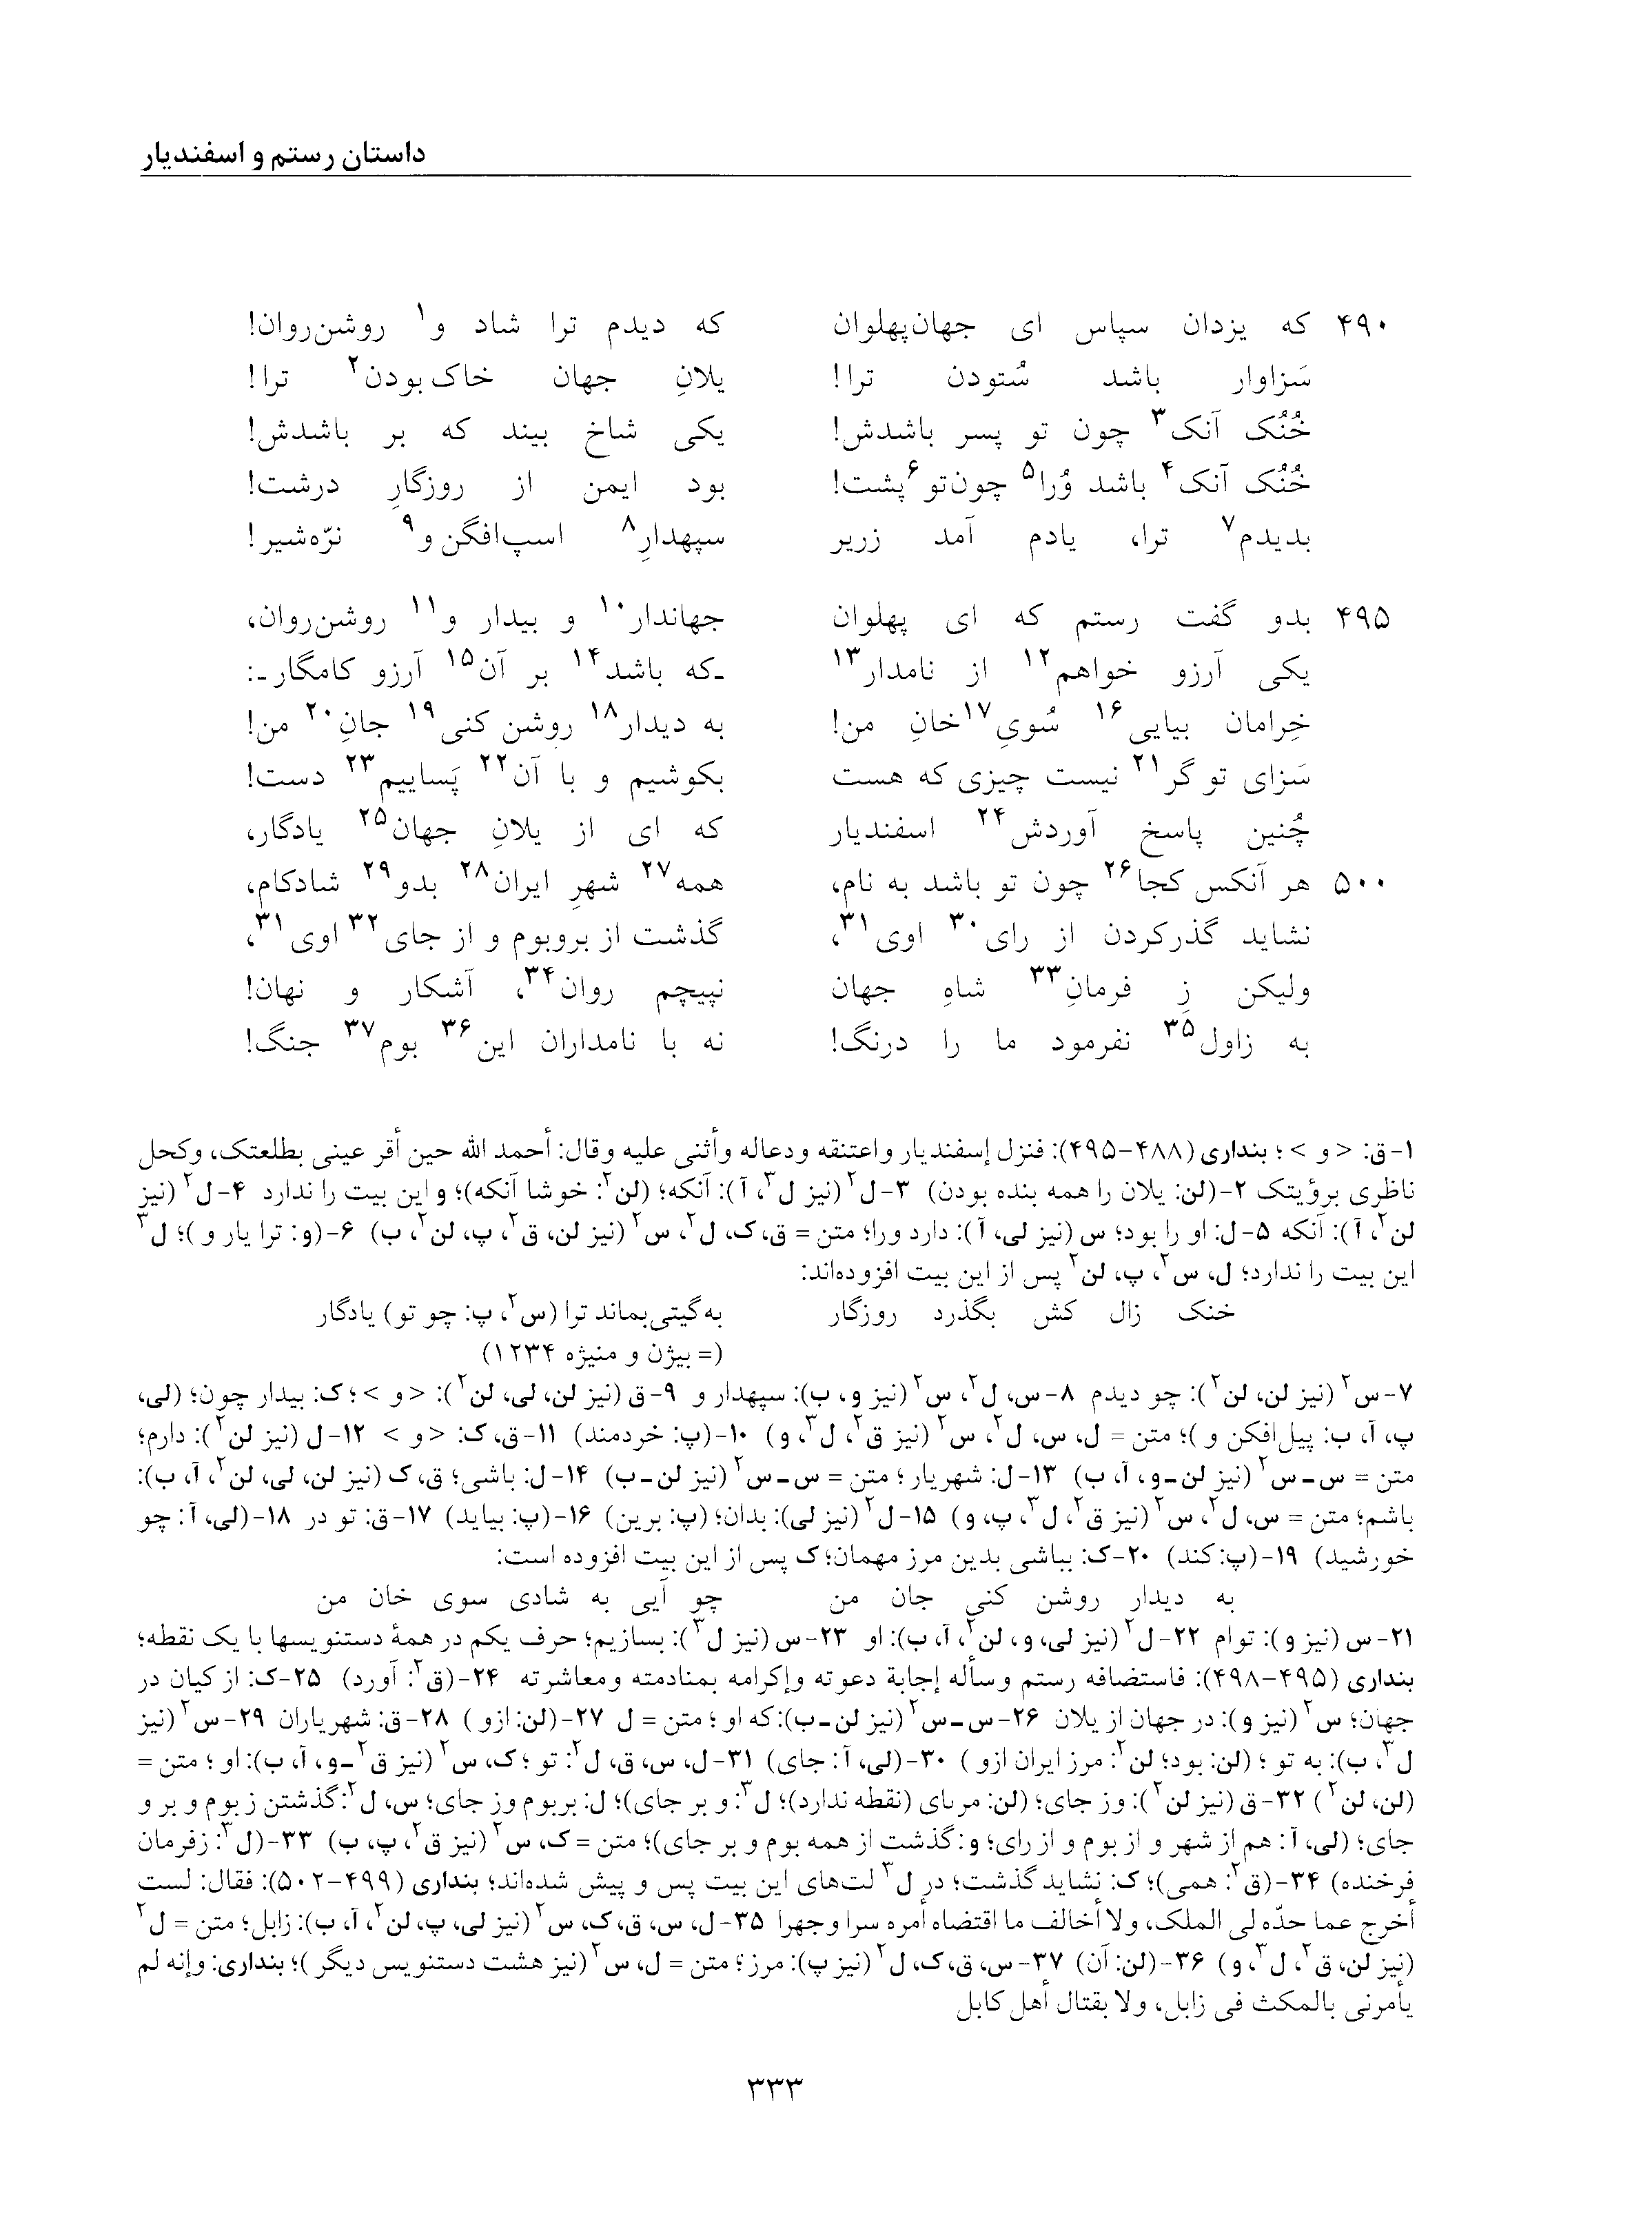 داستان رستم و اسفندیار
۴۹۰ که یزدان سپاس ای جهان‌پهلوان که دیدم ترا شاد و۱ روشن‌روان!
سَزاوار باشد سُتودن ترا! یلانِ جهان خاک بودن۲ ترا!
خُنُک آنک۳ چون تو پسر باشدش! یکی شاخ بیند که بر باشدش!
خُنُک آنک۴ باشد وُرا۵ چون‌تو۶ پشت! بود ایمن از روزگارِ درشت!
بدیدم۷ ترا، یادم آمد زریر سپهدارِ۸ اسپ‌افگن و۹ نرّه‌شیر!
۴۹۵ بدو گفت رستم که ای پهلوان جهاندار۱۰ و بیدار و۱۱ روشن‌روان،
یکی آرزو خواهم۱۲ از نامدار۱۳ ـ‌که باشد۱۴ بر آن۱۵ آرزو کامگار‌ـ:
خِرامان بیایی۱۶ سُویِ۱۷ خانِ من! به دیدار۱۸ روشن کنی۱۹ جانِ۲۰ من!
سَزای تو گر۲۱ نیست چیزی که هست بکوشیم و با آن۲۲ پَساییم۲۳ دست!
چُنین پاسخ آوردش۲۴ اسفندیار که ای از یلانِ جهان۲۵ یادگار،
۵۰۰ هر آنکس کجا۲۶ چون تو باشد به نام، همه۲۷ شهرِ ایران۲۸ بدو۲۹ شادکام،
نشاید گذرکردن از رای۳۰ اوی۳۱، گذشت از بروبوم و از جای۳۲ اوی۳۱،
ولیکن زِ فرمانِ۳۳ شاهِ جهان نپیچم روان۳۴، آشکار و نهان!
به زاول۳۵ نفرمود ما را درنگ! نه با نامداران این۳۶ بوم۳۷ جنگ!
۱-ق: <و>؛ بنداری (۴۸۸-۴۹۵): فنزل إسفندیار واعتنقه ودعاله وأثنی علیه وقال: أحمد الله حین أقر عینی بطلعتک، وکحل
ناظری برؤیتک ۲-(لن: یلان را همه بنده بودن) ۳-ل۲ (نیز ل۳، آ): آنکه؛ (لن۲: خوشا آنکه)؛ و این بیت را ندارد ۴-ل۲ (نیز
لن۲، آ): آنکه ۵-ل: او را بود؛ س (نیز لی، آ): دارد ورا؛ متن = ق، ک، ل۲، س۲ (نیز لن، ق۲، پ، لن۲، ب) ۶-(و: ترا یار و)؛ ل۳
این بیت را ندارد؛ ل، س۲، پ، لن۲ پس از این بیت افزوده‌اند:
خنک زال کش بگذرد روزگار به گیتی بماند ترا (س۲، پ: چو تو) یادگار
(= بیژن و منیژه ۱۲۳۴)
۷-س۲ (نیز لن، لن۲): چو دیدم ۸-س، ل۲، س۲ (نیز و، ب): سپهدار و ۹-ق (نیز لن، لی، لن۲): <و>؛ ک: بیدار چون؛ (لی،
پ، آ، ب: پیل‌افکن و)؛ متن = ل، س، ل۲، س۲ (نیز ق۲، ل۳، و) ۱۰-(پ: خردمند) ۱۱-ق، ک: <و> ۱۲-ل (نیز لن۲): دارم؛
متن = س-س۲ (نیز لن-و، آ، ب) ۱۳-ل: شهریار؛ متن = س-س۲ (نیز لن-ب) ۱۴-ل: باشی؛ ق، ک (نیز لن، لی، لن۲، آ، ب):
باشم؛ متن = س، ل۲، س۲ (نیز ق۲، ل۳، پ، و) ۱۵-ل۲ (نیز لی): بدان؛ (پ: برین) ۱۶-(پ: بیاید) ۱۷-ق: تو در ۱۸-(لی، آ: چو
خورشید) ۱۹-(پ: کند) ۲۰-ک: بباشی بدین مرز مهمان؛ ک پس از این بیت افزوده است:
به دیدار روشن کنی جان من چو آیی به شادی سوی خان من
۲۱-س (نیز و): توام ۲۲-ل۲ (نیز لی، و، لن۲، آ، ب): او ۲۳-س (نیز ل۳): بسازیم؛ حرف یکم در همهٔ دستنویسها با یک نقطه؛
بنداری (۴۹۵-۴۹۸): فاستضافه رستم وسأله إجابة دعوته وإکرامه بمنادمته ومعاشرته ۲۴-(ق۲: آورد) ۲۵-ک: از کیان در
جهان؛ س۲ (نیز و): در جهان از یلان ۲۶-س-س۲ (نیز لن-ب): که او؛ متن = ل ۲۷-(لن: ازو) ۲۸-ق: شهریاران ۲۹-س۲ (نیز
ل۳، ب): به تو؛ (لن: بود؛ لن۲: مرز ایران ازو) ۳۰-(لی، آ: جای) ۳۱-ل، س، ق، ل۲: تو؛ ک، س۲ (نیز ق۲-و، آ، ب): او؛ متن =
(لن، لن۲) ۳۲-ق (نیز لن۲): وز جای؛ (لن: مربای (نقطه ندارد)؛ ل۳: و بر جای)؛ ل: بربوم وز جای؛ س، ل۲: گذشتن ز بوم و بر و
جای؛ (لی، آ: هم از شهر و از بوم و از رای؛ و: گذشت از همه بوم و بر جای)؛ متن = ک، س۲ (نیز ق۲، پ، ب) ۳۳-(ل۳: زفرمان
فرخنده) ۳۴-(ق۲: همی)؛ ک: نشاید گذشت؛ در ل۳ لت‌های این بیت پس و پیش شده‌اند؛ بنداری (۴۹۹-۵۰۲): فقال: لست
أخرج عما حدّه لی الملک، ولا أخالف ما اقتضاه أمره سرا وجهرا ۳۵-ل، س، ق، ک، س۲ (نیز لی، پ، لن۲، آ، ب): زابل؛ متن = ل۲
(نیز لن، ق۲، ل۳، و) ۳۶-(لن: آن) ۳۷-س، ق، ک، ل۲ (نیز پ): مرز؛ متن = ل، س۲ (نیز هشت دستنویس دیگر)؛ بنداری: وإنه لم
یأمرنی بالمکث فی زابل، ولا بقتال أهل کابل
۳۳۳